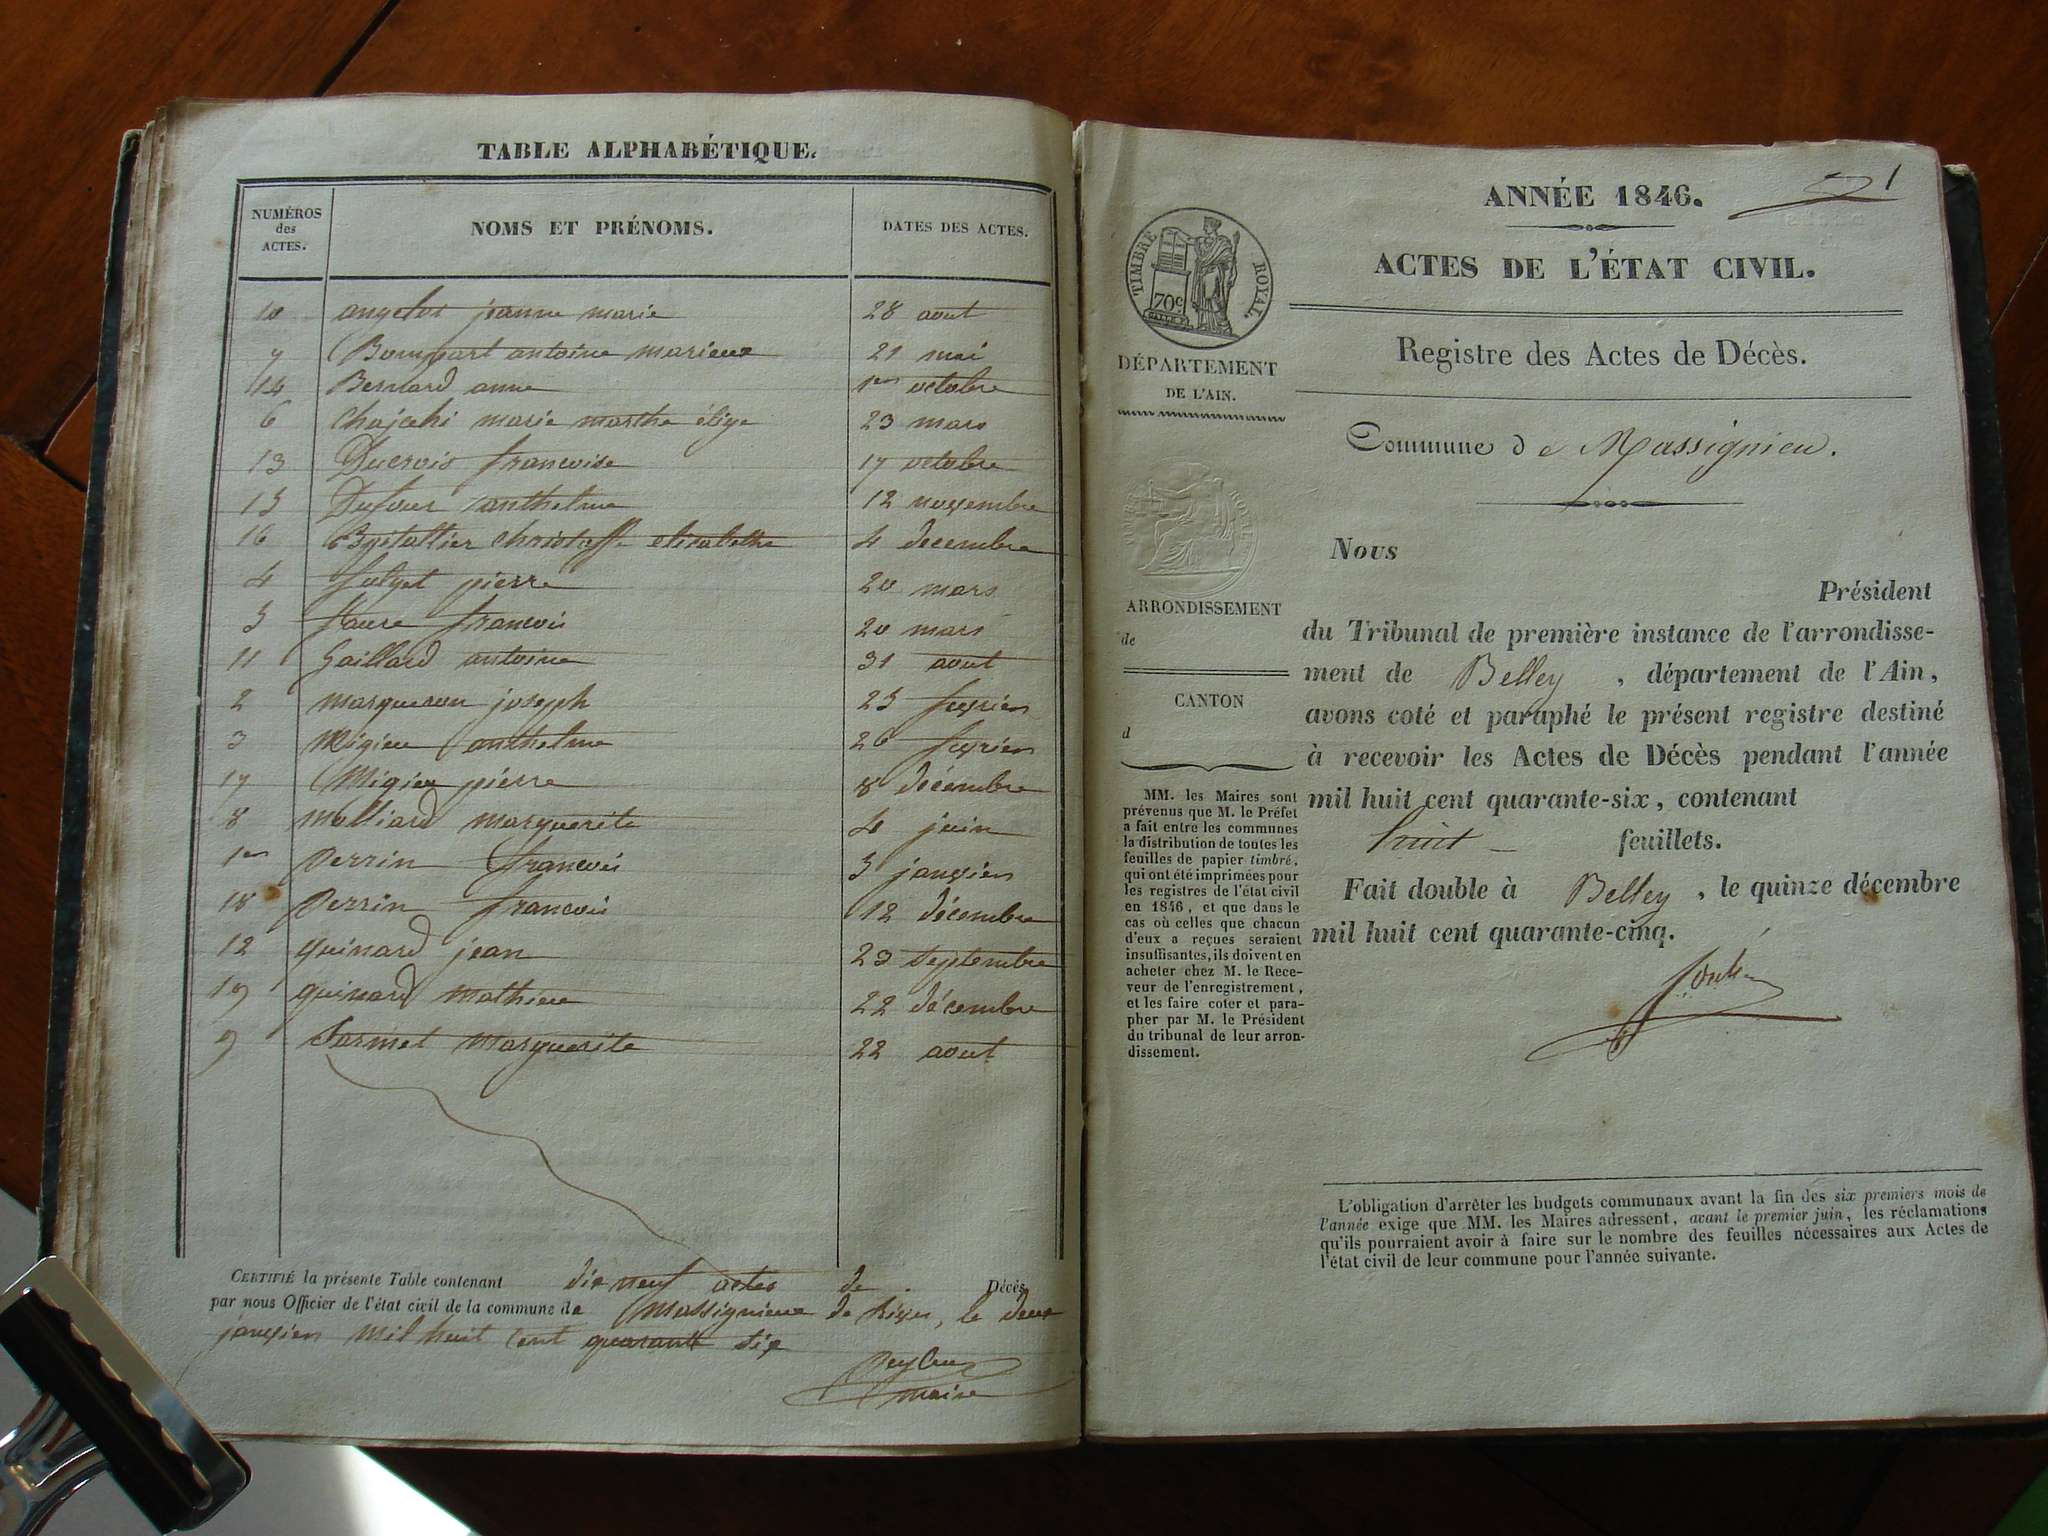 TABLE ALPHABÉTIQUE.
NUMÉROS des ACTES. NOMS ET PRÉNOMS. DATES DES ACTES.
10 angelot jeanne marie 28 aout
7 Bompart antoine marieux 21 mai
14 Bernard anne 1er octobre
6 marie marthe 23 mars
13 Ducrois francoise 17 octobre
15 Dufour anthelme 12 novembre
16 elisabethe 4 decembre
4 pierre 20 mars
5 faure francois 20 mars
11 Gaillard antoine 31 aout
2 marqueron joseph 23 fevrier
3 Migieu anthelme 26 fevrier
17 Migieu pierre 8 décembre
8 molliard marguerite 4 juin
1er Perrin francois 5 janvier
18 Perrin francois 12 décembre
12 quinard jean 23 septembre
19 quinard mathieu 22 décembre
9 Sarmet marguerite 22 aout
CERTIFIÉ la présente Table contenant dix neuf actes de Décès
par nous Officier de l'état civil de la commune de Massignieu de Rives, le deux
janvier mil huit cent quarante six
maire
1
ANNÉE 1846.
ACTES DE L'ÉTAT CIVIL.
Registre des Actes de Décès.
TIMBRE ROYAL.
70c
DÉPARTEMENT
DE L'AIN.
Commune de Massignieu.
ARRONDISSEMENT
de
CANTON
d
MM. les Maires sont
prévenus que M. le Préfet
a fait entre les communes
la distribution de toutes les
feuilles de papier timbré,
qui ont été imprimées pour
les registres de l'état civil
en 1846, et que dans le
cas où celles que chacun
d'eux a reçues seraient
insuffisantes, ils doivent en
acheter chez M. le Rece-
veur de l'enregistrement,
et les faire coter et para-
pher par M. le Président
du tribunal de leur arron-
dissement.
Nous
Président
du Tribunal de première instance de l'arrondisse-
ment de Belley, département de l'Ain,
avons coté et paraphé le présent registre destiné
à recevoir les Actes de Décès pendant l'année
mil huit cent quarante-six, contenant
huit feuillets.
Fait double à Belley, le quinze décembre
mil huit cent quarante-cinq.
L'obligation d'arrêter les budgets communaux avant la fin des six premiers mois de
l'année exige que MM. les Maires adressent, avant le premier juin, les réclamations
qu'ils pourraient avoir à faire sur le nombre des feuilles nécessaires aux Actes de
l'état civil de leur commune pour l'année suivante.